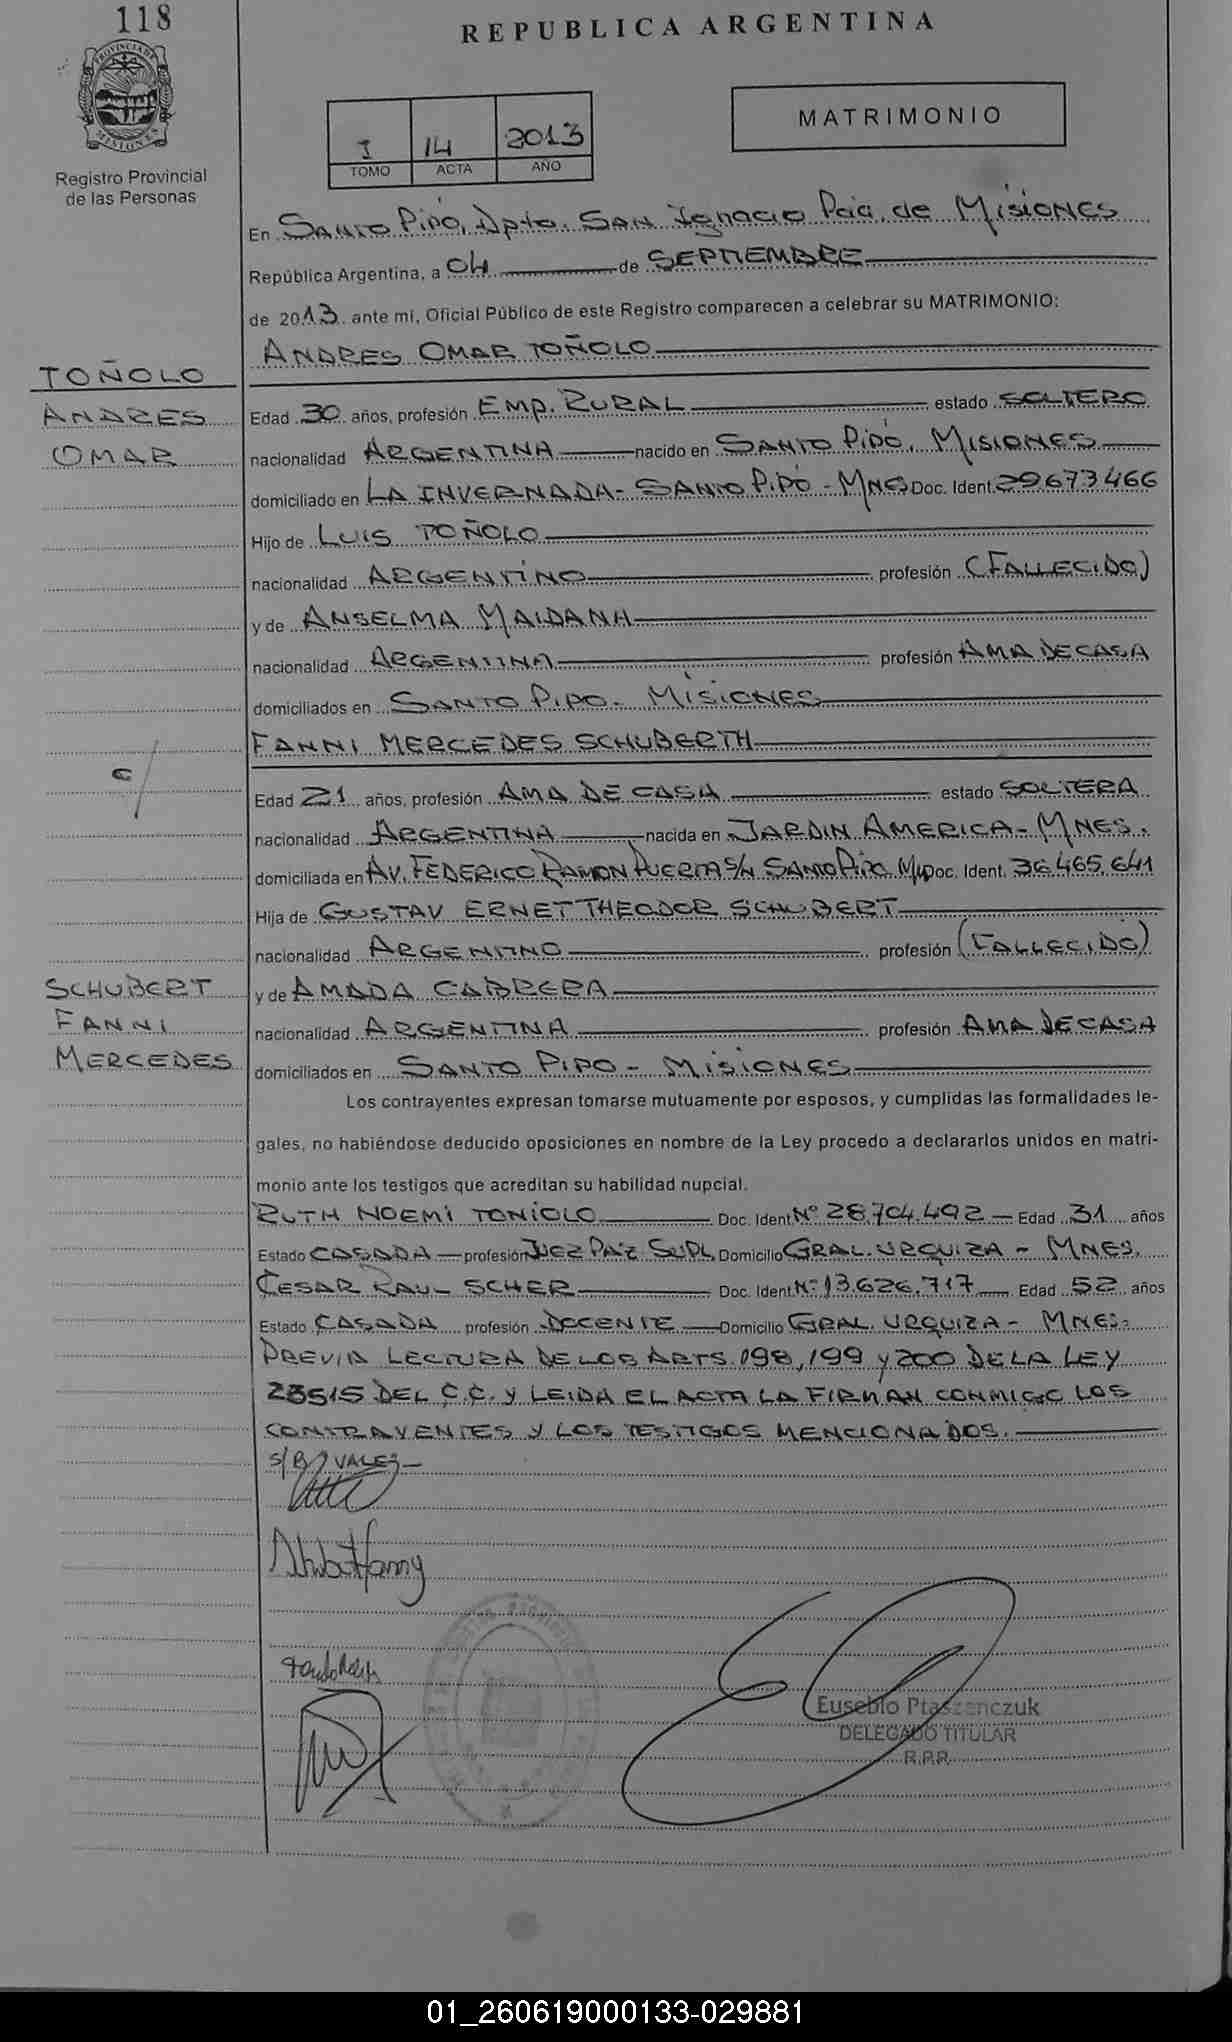 118
REPUBLICA ARGENTINA
PROVINCIA DE
MISIONES
Registro Provincial
de las Personas
I 14 2013
TOMO ACTA AÑO
MATRIMONIO
En SANTO PIPÓ, Dpto. SAN Ignacio Pcia. de MISIONES
República Argentina, a 04 de SEPTIEMBRE
de 2013 ante mi, Oficial Público de este Registro comparecen a celebrar su MATRIMONIO:
ANDRES OMAR TOÑOLO
TOÑOLO
ANDRES
OMAR
Edad 30 años, profesión EMP. RURAL estado SOLTERO
nacionalidad ARGENTINA nacido en SANTO PIPÓ, MISIONES
domiciliado en LA INVERNADA - SANTO PIPÓ - MNES Doc. Ident. 29673466
Hijo de LUIS TOÑOLO
nacionalidad ARGENTINO profesión (FALLECIDO)
y de ANSELMA MAIDANA
nacionalidad ARGENTINA profesión AMA DE CASA
domiciliados en SANTO PIPO - MISIONES
FANNI MERCEDES SCHUBERTH
C/
Edad 21 años, profesión AMA DE CASA estado SOLTERA
nacionalidad ARGENTINA nacida en JARDIN AMERICA - MNES.
domiciliada en AV. FEDERICO RAMON PUERTA S/N SANTO PIPO Doc. Ident. 36.465.641
Hija de GUSTAV ERNET THEODOR SCHUBERT
nacionalidad ARGENTINO profesión (FALLECIDO)
SCHUBERT
FANNI
MERCEDES
y de AMADA CABRERA
nacionalidad ARGENTINA profesión AMA DE CASA
domiciliados en SANTO PIPO - MISIONES
Los contrayentes expresan tomarse mutuamente por esposos, y cumplidas las formalidades le-
gales, no habiéndose deducido oposiciones en nombre de la Ley procedo a declararlos unidos en matri-
monio ante los testigos que acreditan su habilidad nupcial.
RUTH NOEMI TONIOLO Doc. Ident. Nº 28.704.492 Edad 31 años
Estado CASADA profesión JUEZ PAZ SUPL. Domicilio GRAL. URQUIZA - MNES.
CESAR RAUL SCHER Doc. Ident. Nº 13.626.717 Edad 52 años
Estado CASADA profesión DOCENTE Domicilio GRAL. URQUIZA - MNES.
PREVIA LECTURA DE LOS ARTS. 198, 199 Y 200 DE LA LEY
23515 DEL C.C. Y LEIDA EL ACTA LA FIRMAN CONMIGO LOS
CONTRAYENTES Y LOS TESTIGOS MENCIONADOS.
VALE
Eusebio Ptaszenczuk
DELEGADO TITULAR
R.P.P.
01_260619000133-029881